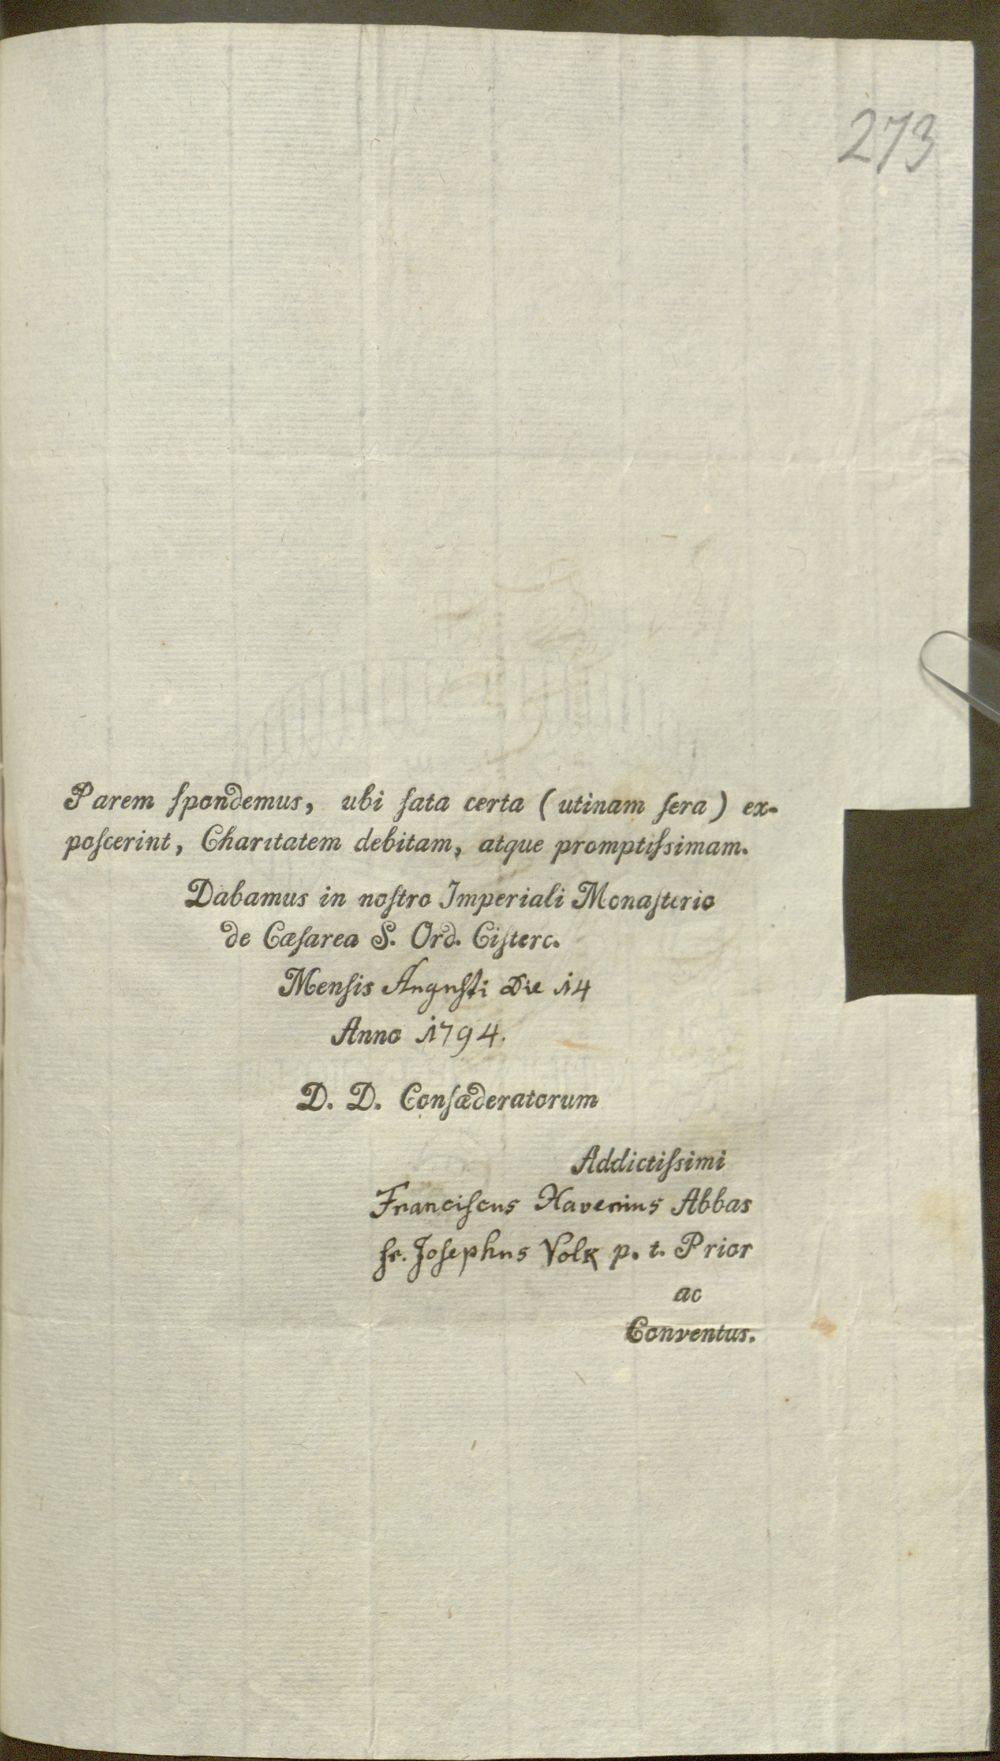 273
Parem ſpondemus, ubi fata certa (utinam ſera) ex-
poſcerint, Charitatem debitam, atque promptiſsimam.
Dabamus in noſtro Imperiali Monaſterio
de Cæſarea S. Ord. Ciſterc.
Menſis Auguſti Die 14
Anno 1794.
D. D. Confæderatorum
Addictiſsimi
Franciſcus Xaverius Abbas
fr. Joſephus Volk p. t. Prior
ac
Conventus.